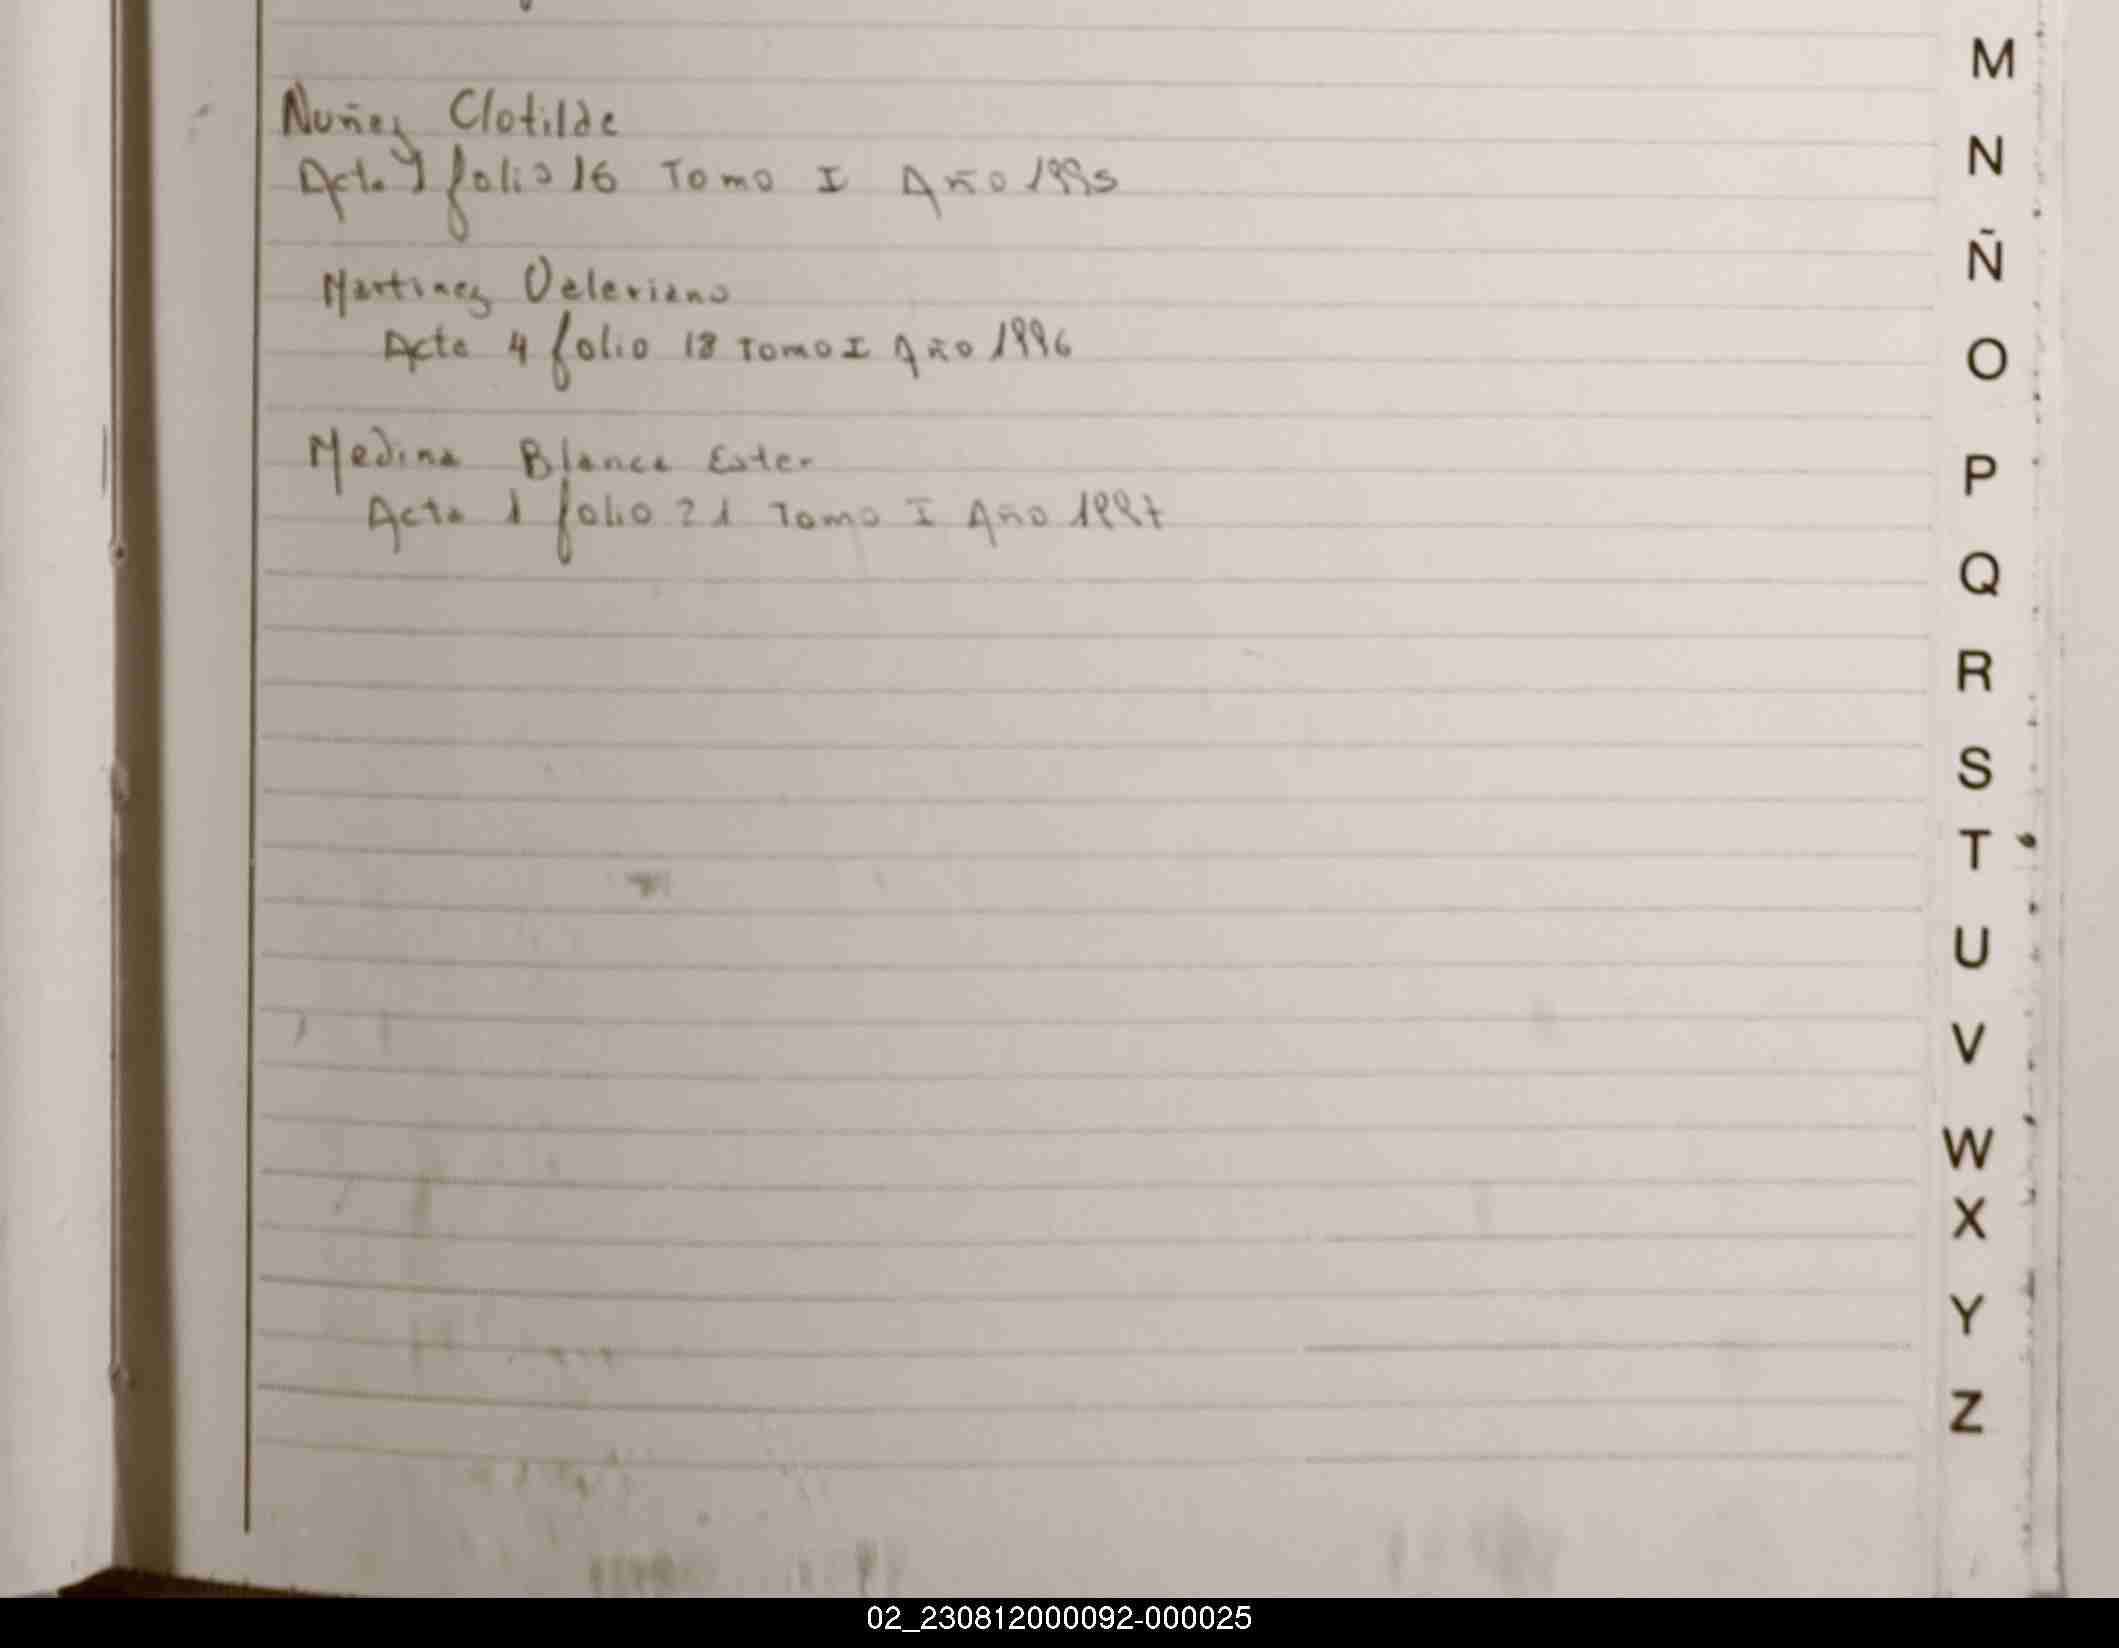 Nuñez Clotilde
Acta 9 folio 16 Tomo I Año 1995
Martinez Valeriano
Acta 4 folio 18 Tomo I Año 1996
Medina Blanca Ester
Acta 1 folio 21 Tomo I Año 1997
M
N
Ñ
O
P
Q
R
S
T
U
V
W
X
Y
Z
02_230812000092-000025